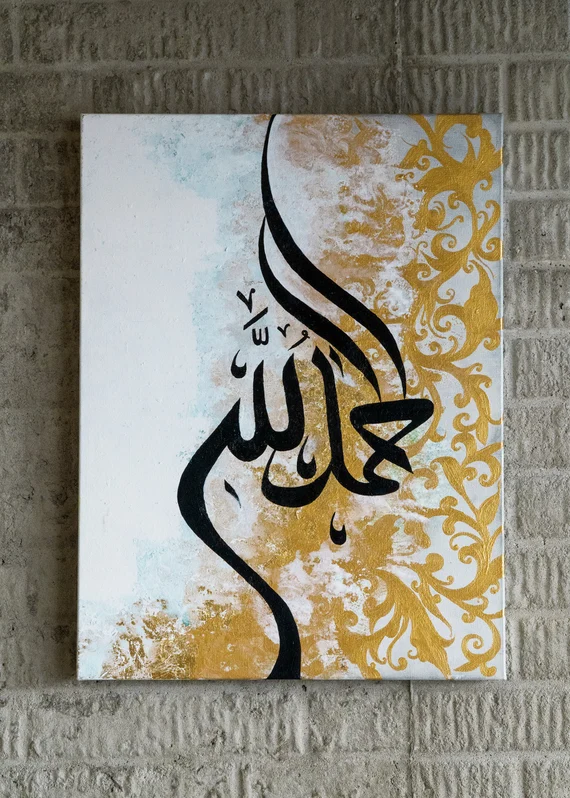 الحمد للَّه